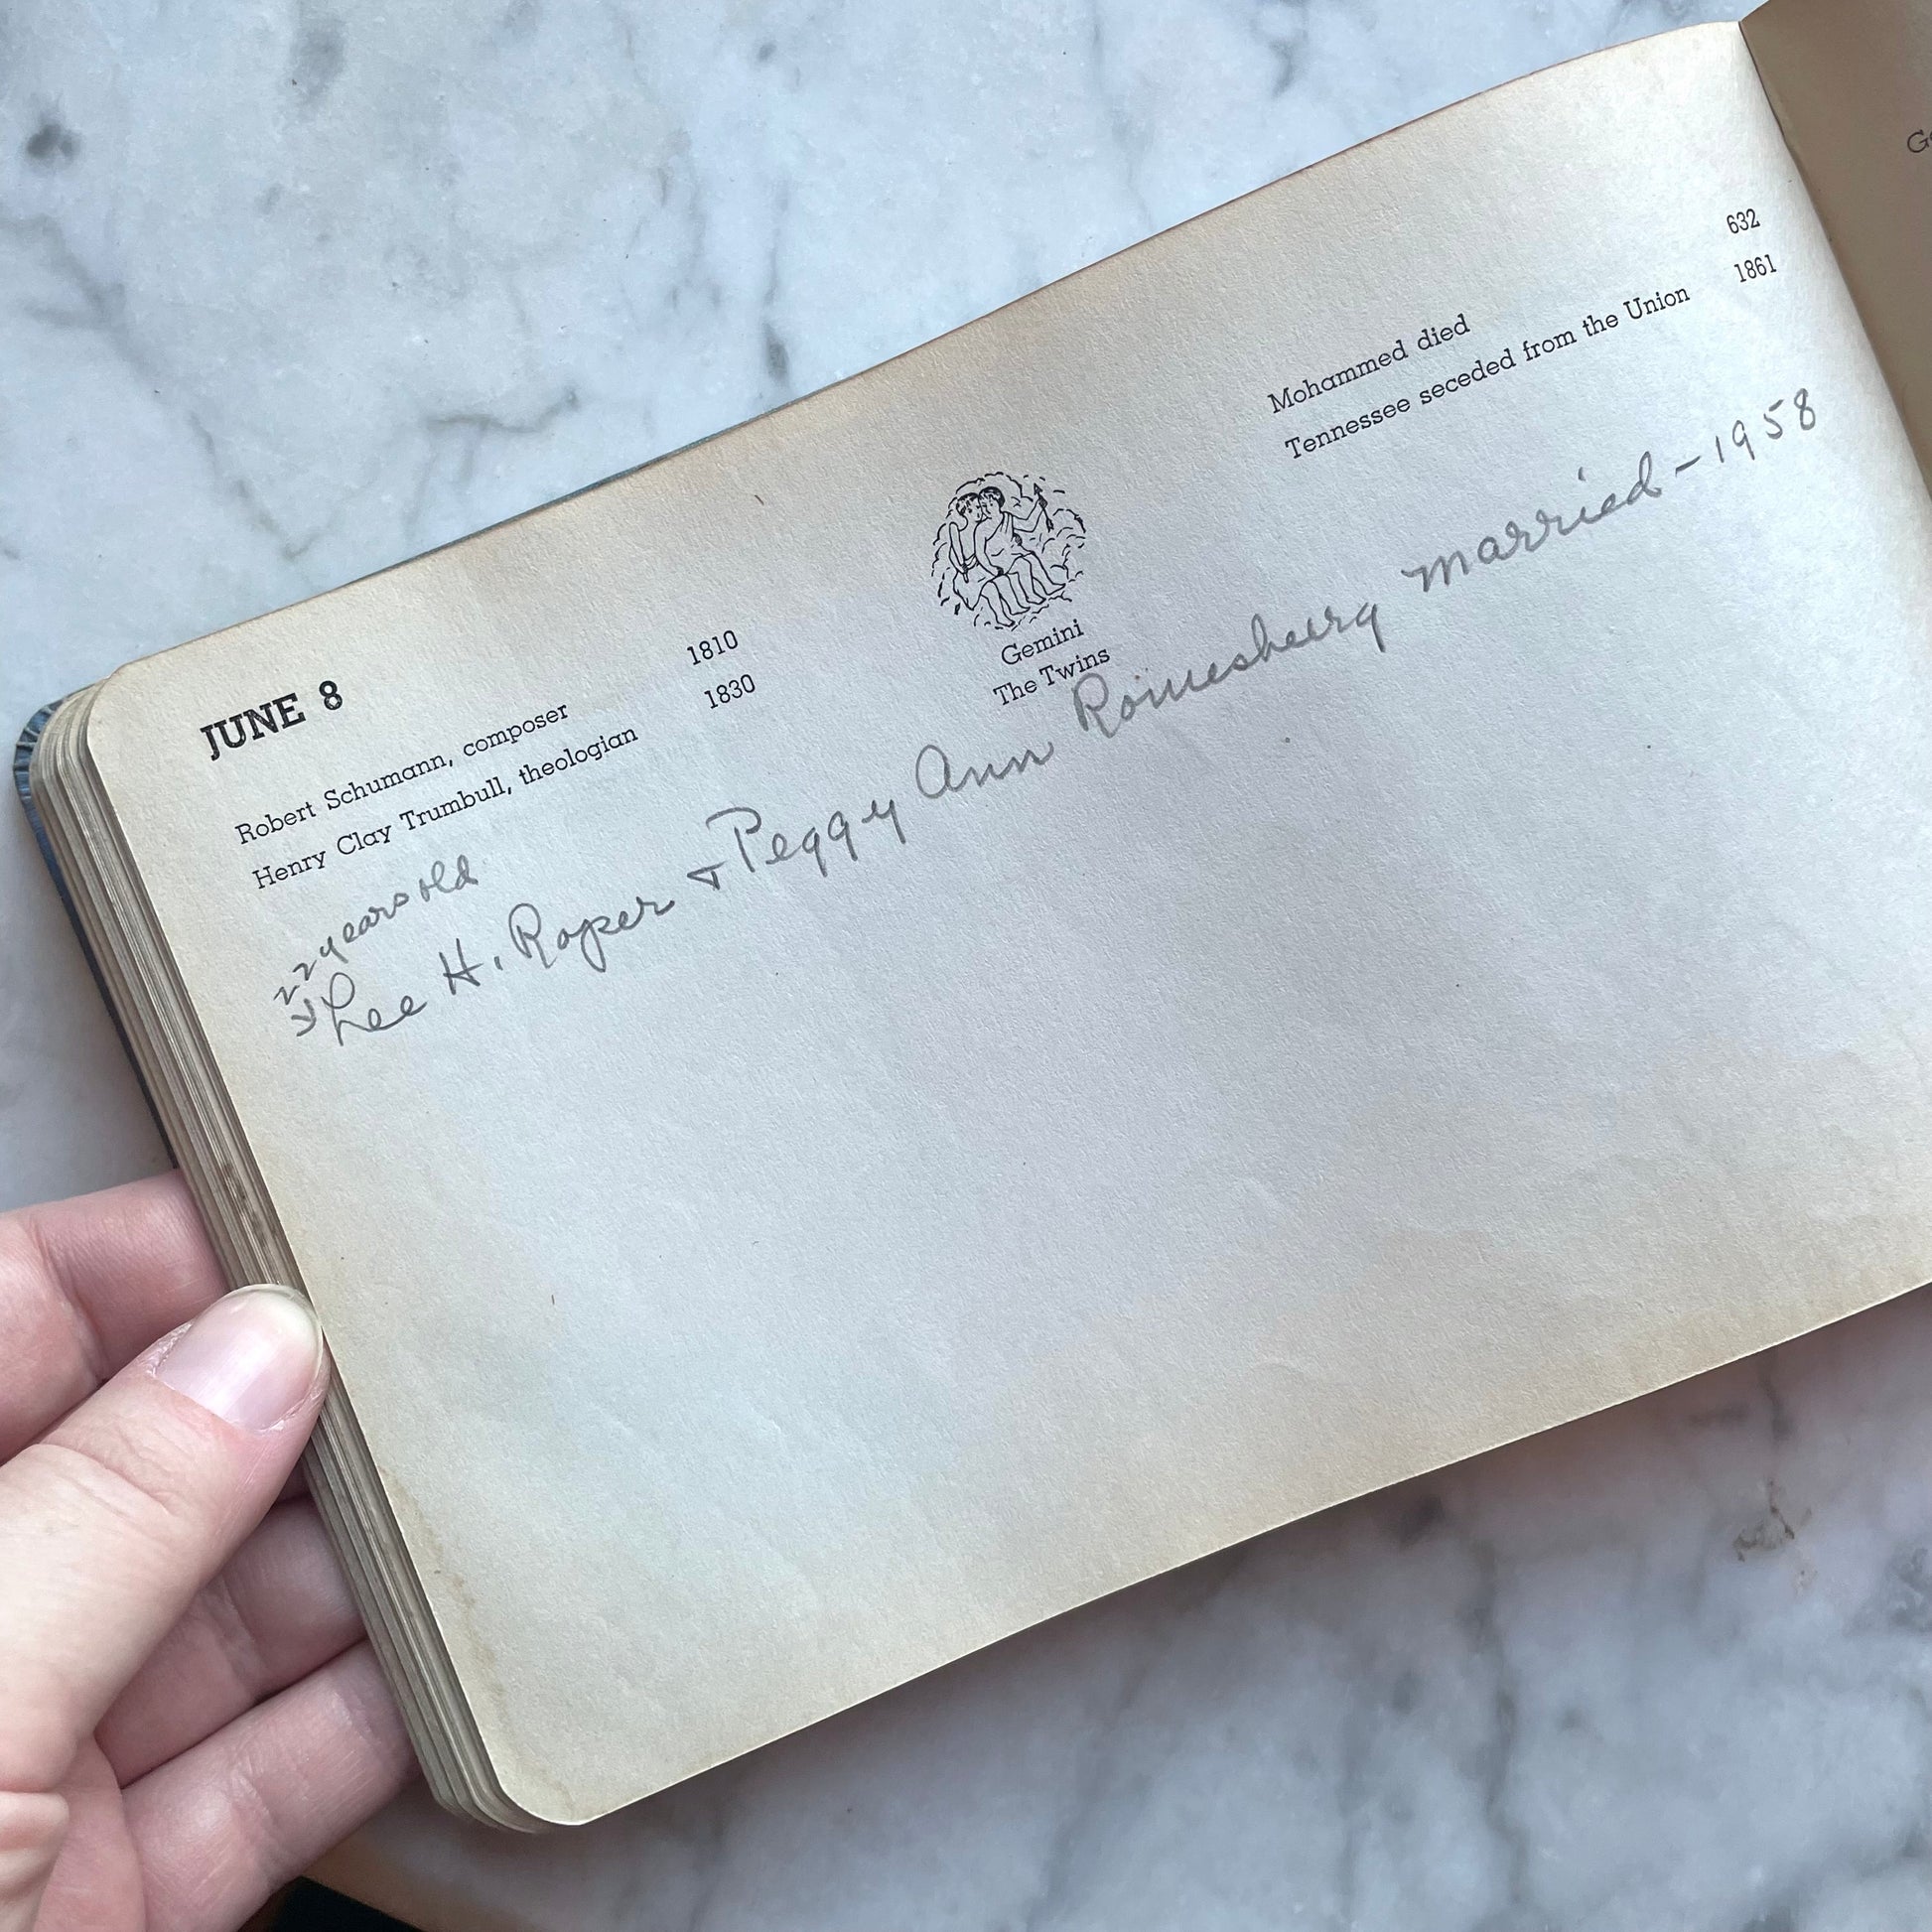 JUNE 8
Robert Schumann, composer 1810
Henry Clay Trumbull, theologian 1830
Gemini
The Twins
Mohammed died 632
Tennessee seceded from the Union 1861
22 years old
Lee H. Roper & Peggy Ann Romesberg married - 1958